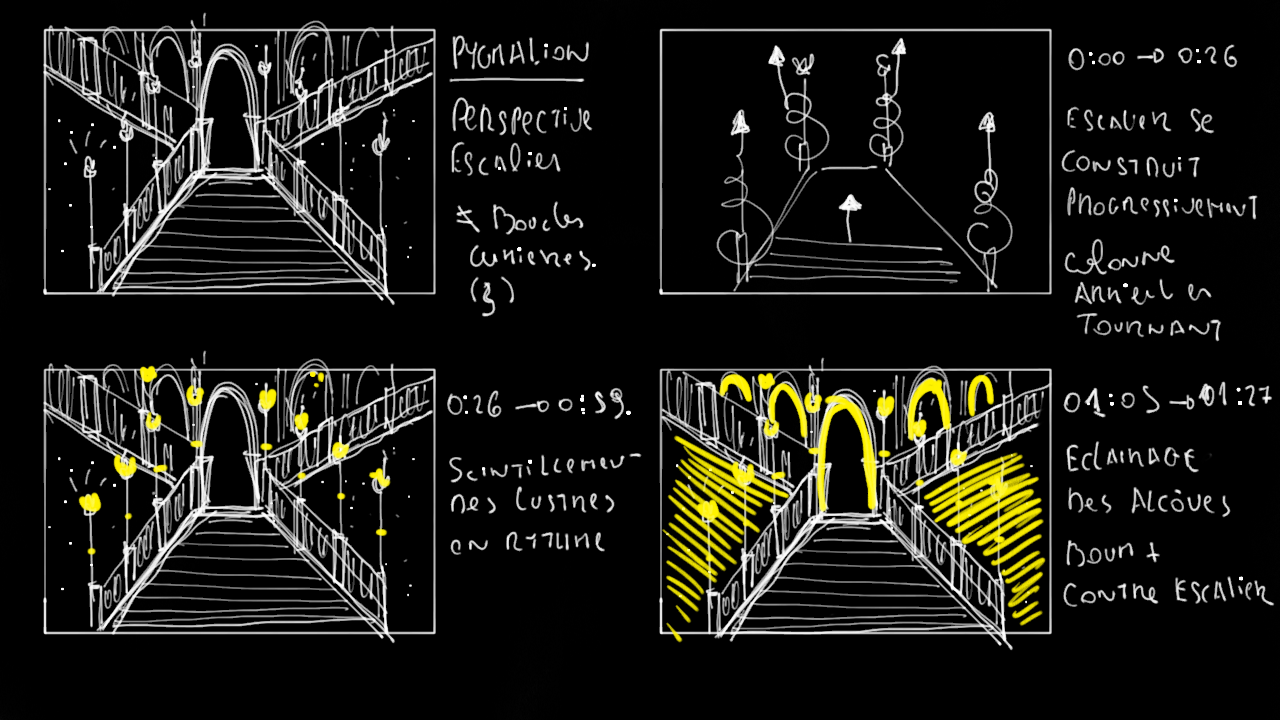 PYGMALION
PERSPECTIVE
ESCALIER
≠ BOUCLES
LUMIERES.
(3)
0:00 → 0:26
ESCALIER SE
CONSTRUIT
PROGRESSIVEMENT
COLONNE
ARRIVE EN
TOURNANT
0:26 → 0:59.
SCINTILLEMENT
DES LUSTRES
EN RYTHME
01:05 → 01:27
ECLAIRAGE
DES ALCÔVES
BOUM +
CONTRE ESCALIER